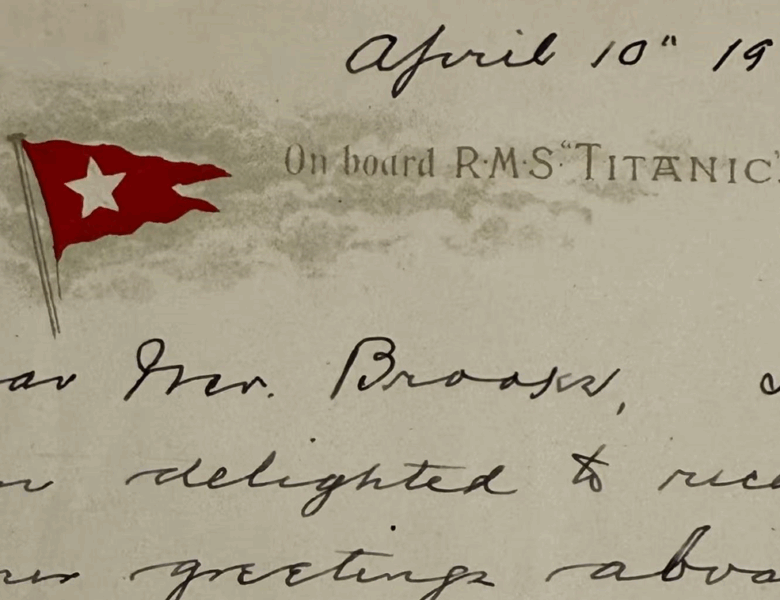 April 10" 19
On board R·M·S·"TITANIC".
ar Mr. Brooks,
delighted to rece
greetings aboa